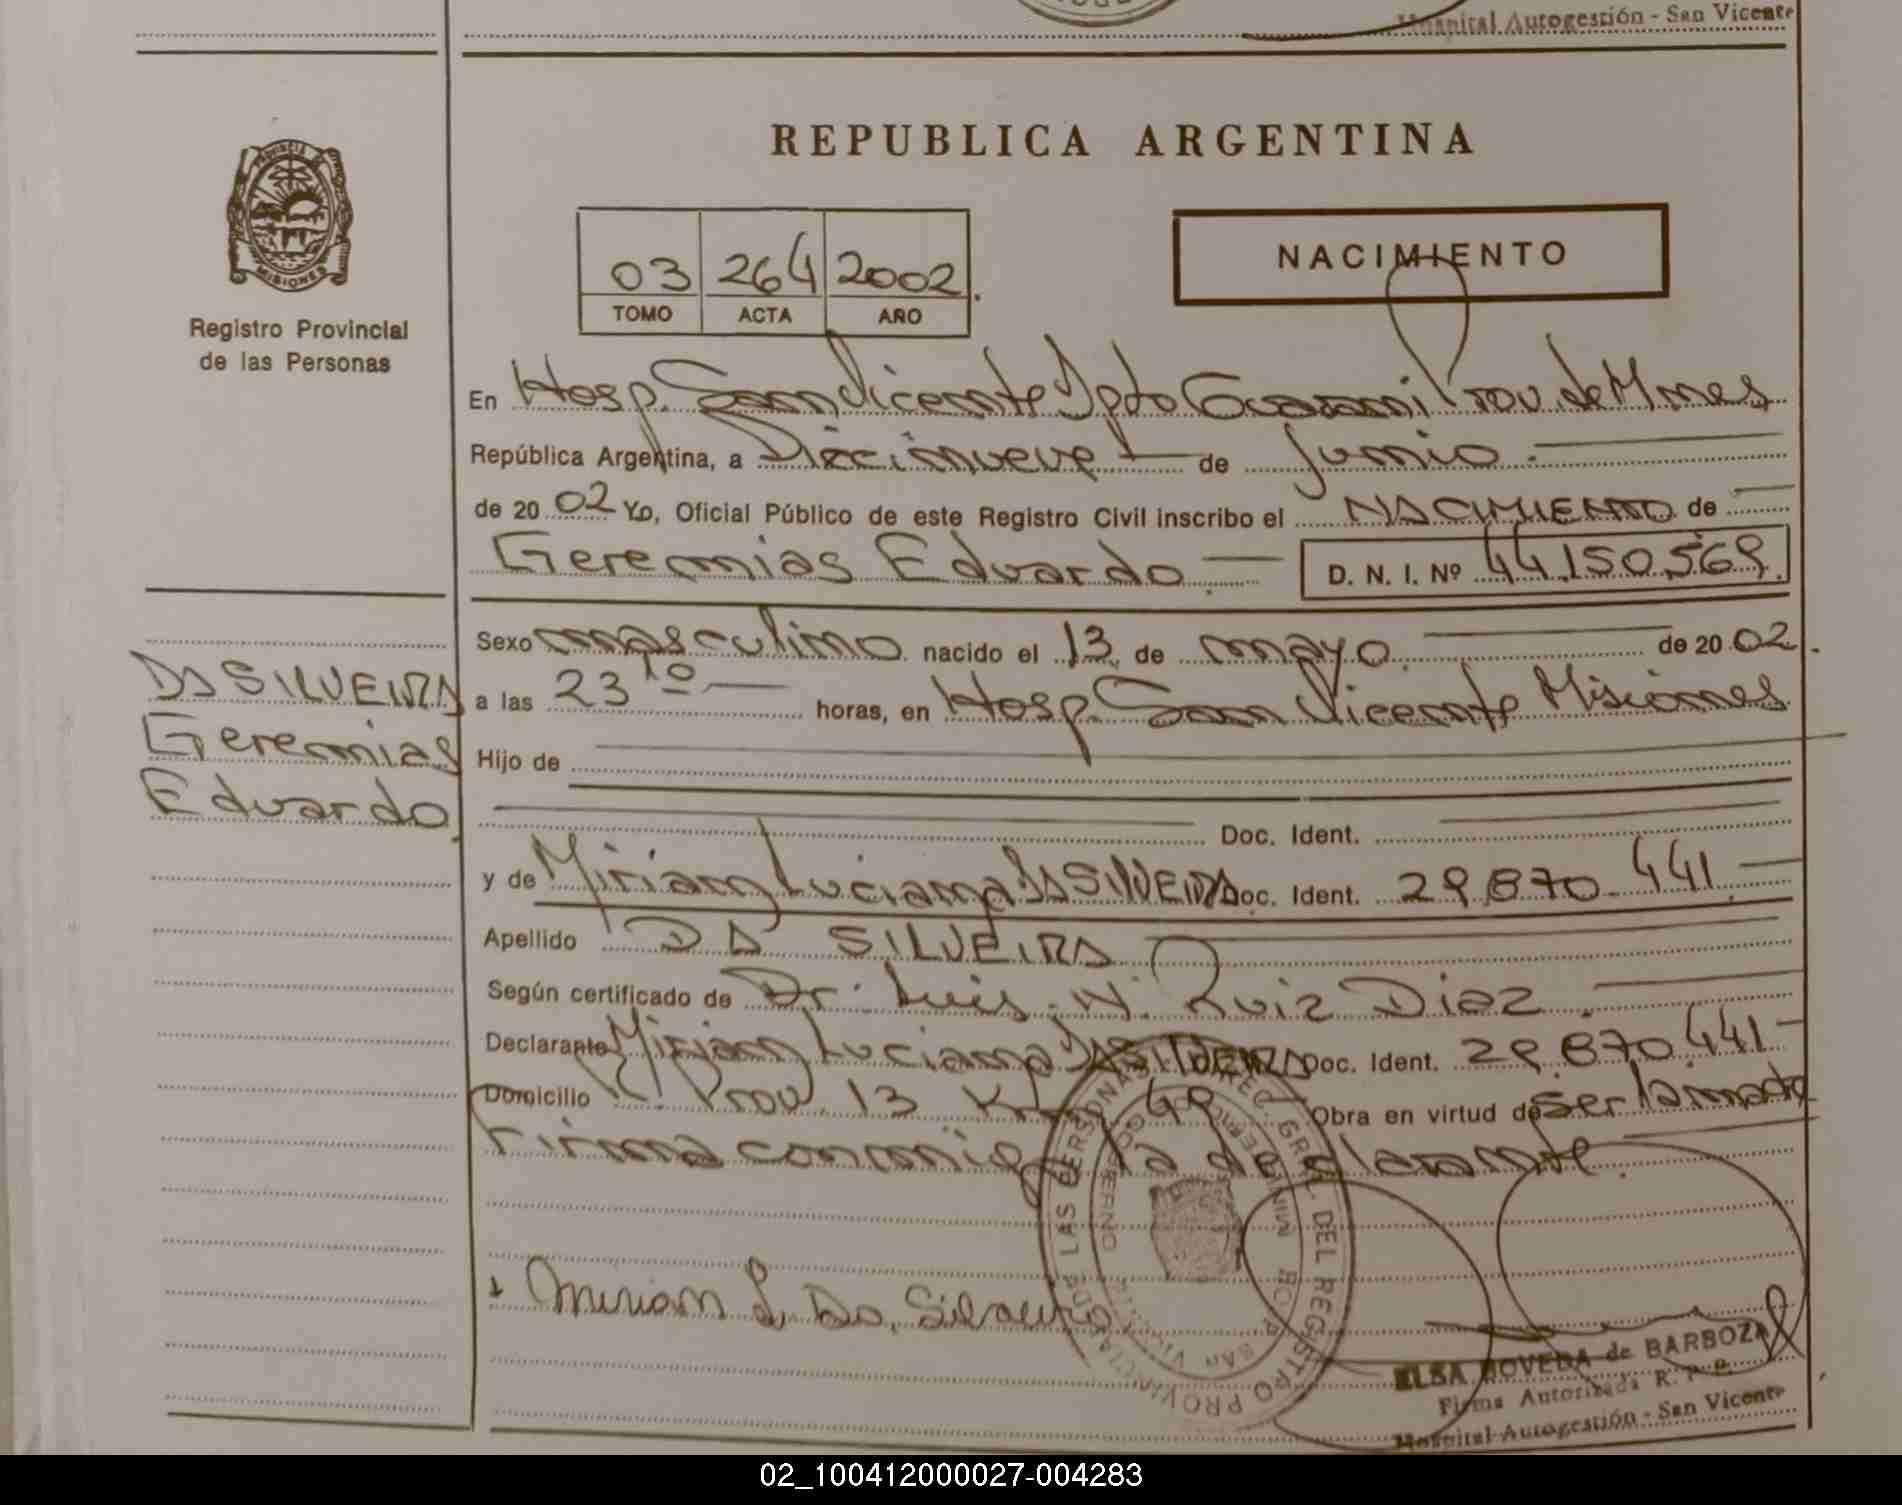 Hospital Autogestión - San Vicente
REPUBLICA ARGENTINA
PROVINCIA DE
MISIONES
Registro Provincial
de las Personas
03 264 2002.
TOMO ACTA AÑO
NACIMIENTO
En Hosp. San Vicente Dpto Guarani Prov. de Mnes
República Argentina, a Diecinueve de Junio.
de 20 02 Yo, Oficial Público de este Registro Civil inscribo el NACIMIENTO de
Geremias Eduardo. D. N. I. Nº 44.150.569.
Sexo masculino nacido el 13 de mayo de 20 02.
DA SILVEIRA
Geremias
Eduardo.
a las 23 10 horas, en Hosp. San Vicente Misiones
Hijo de
Doc. Ident.
y de Miriam Luciana DA SILVEIRA Doc. Ident. 29.870.441
Apellido DA SILVEIRA
Según certificado de Dr. Luis. N. Ruiz Diaz.
Declarante Miriam Luciana DA SILVEIRA Doc. Ident. 29.870.441
Domicilio R. Prov. 13 Km 49 Obra en virtud de Ser
Firma conmigo la declarante.
DIREC. GRAL. DEL REGISTRO PROVINCIAL DE LAS PERSONAS
SAN VICENTE
Miriam L. Da. Silveira
ELSA BOVEDA de BARBOZA
Firma Autorizada R. P. P.
Hospital Autogestión - San Vicente
02_100412000027-004283